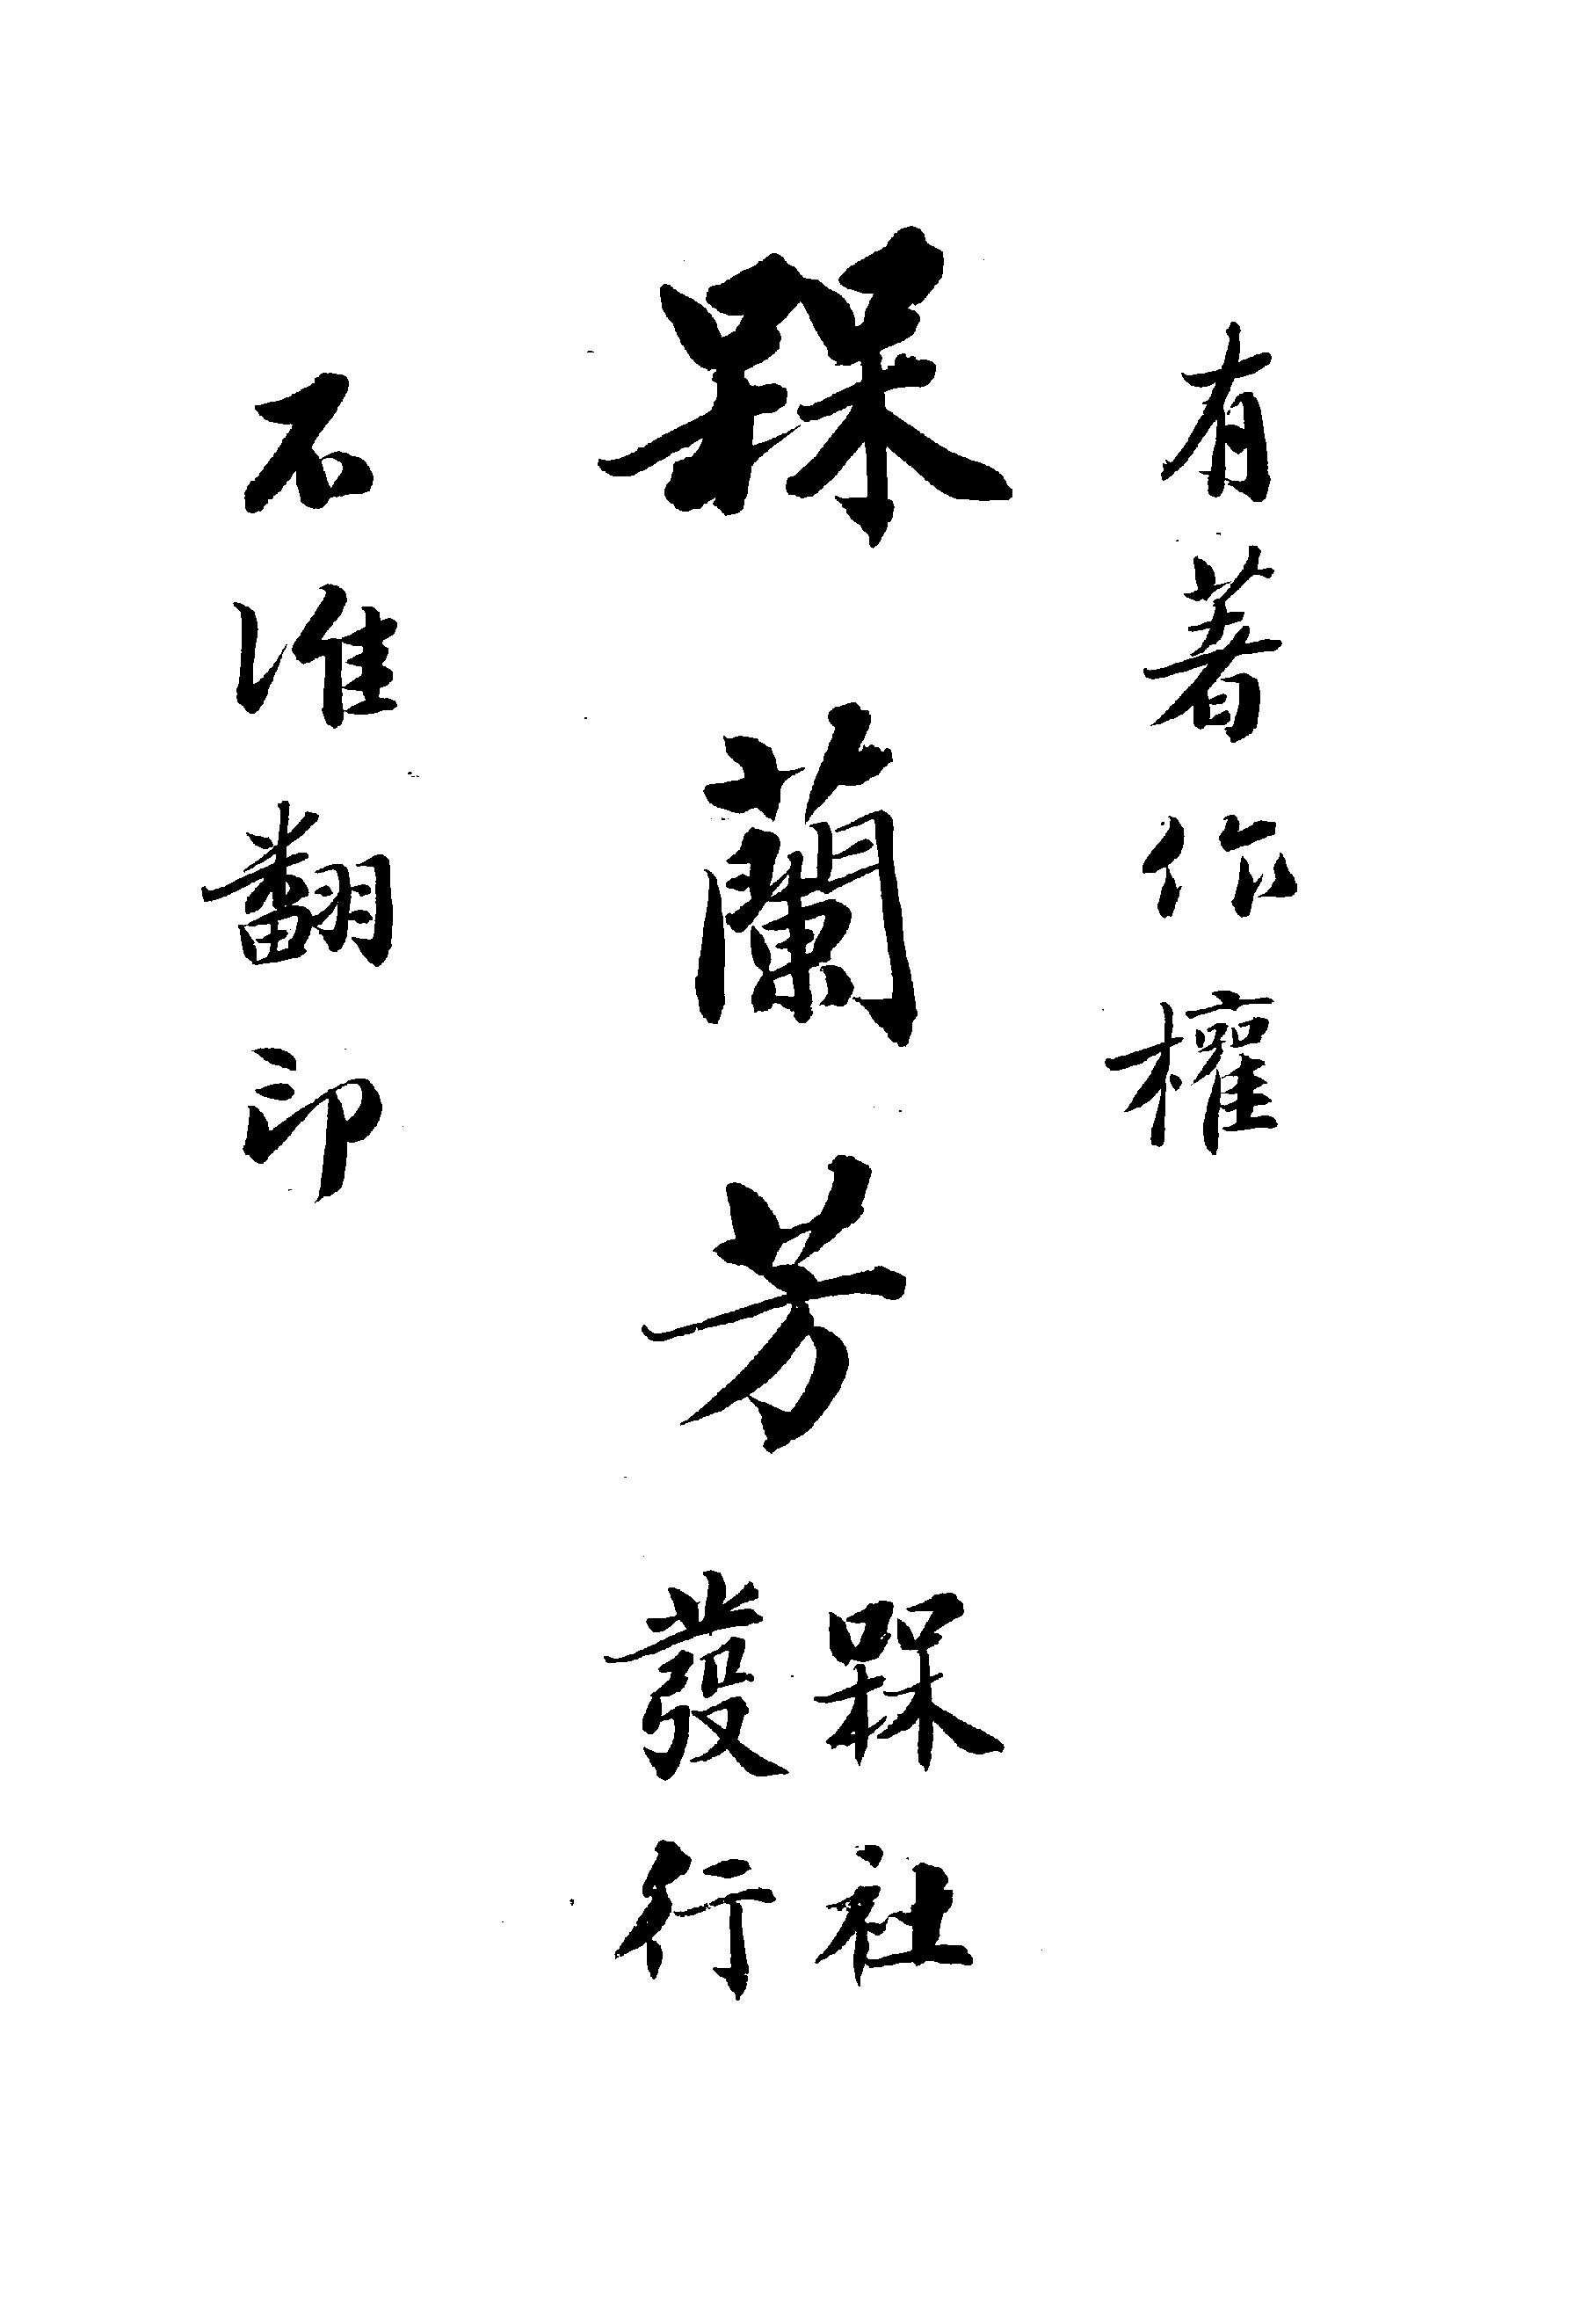 有著作權
槑蘭芳
槑社
發行
不准翻印